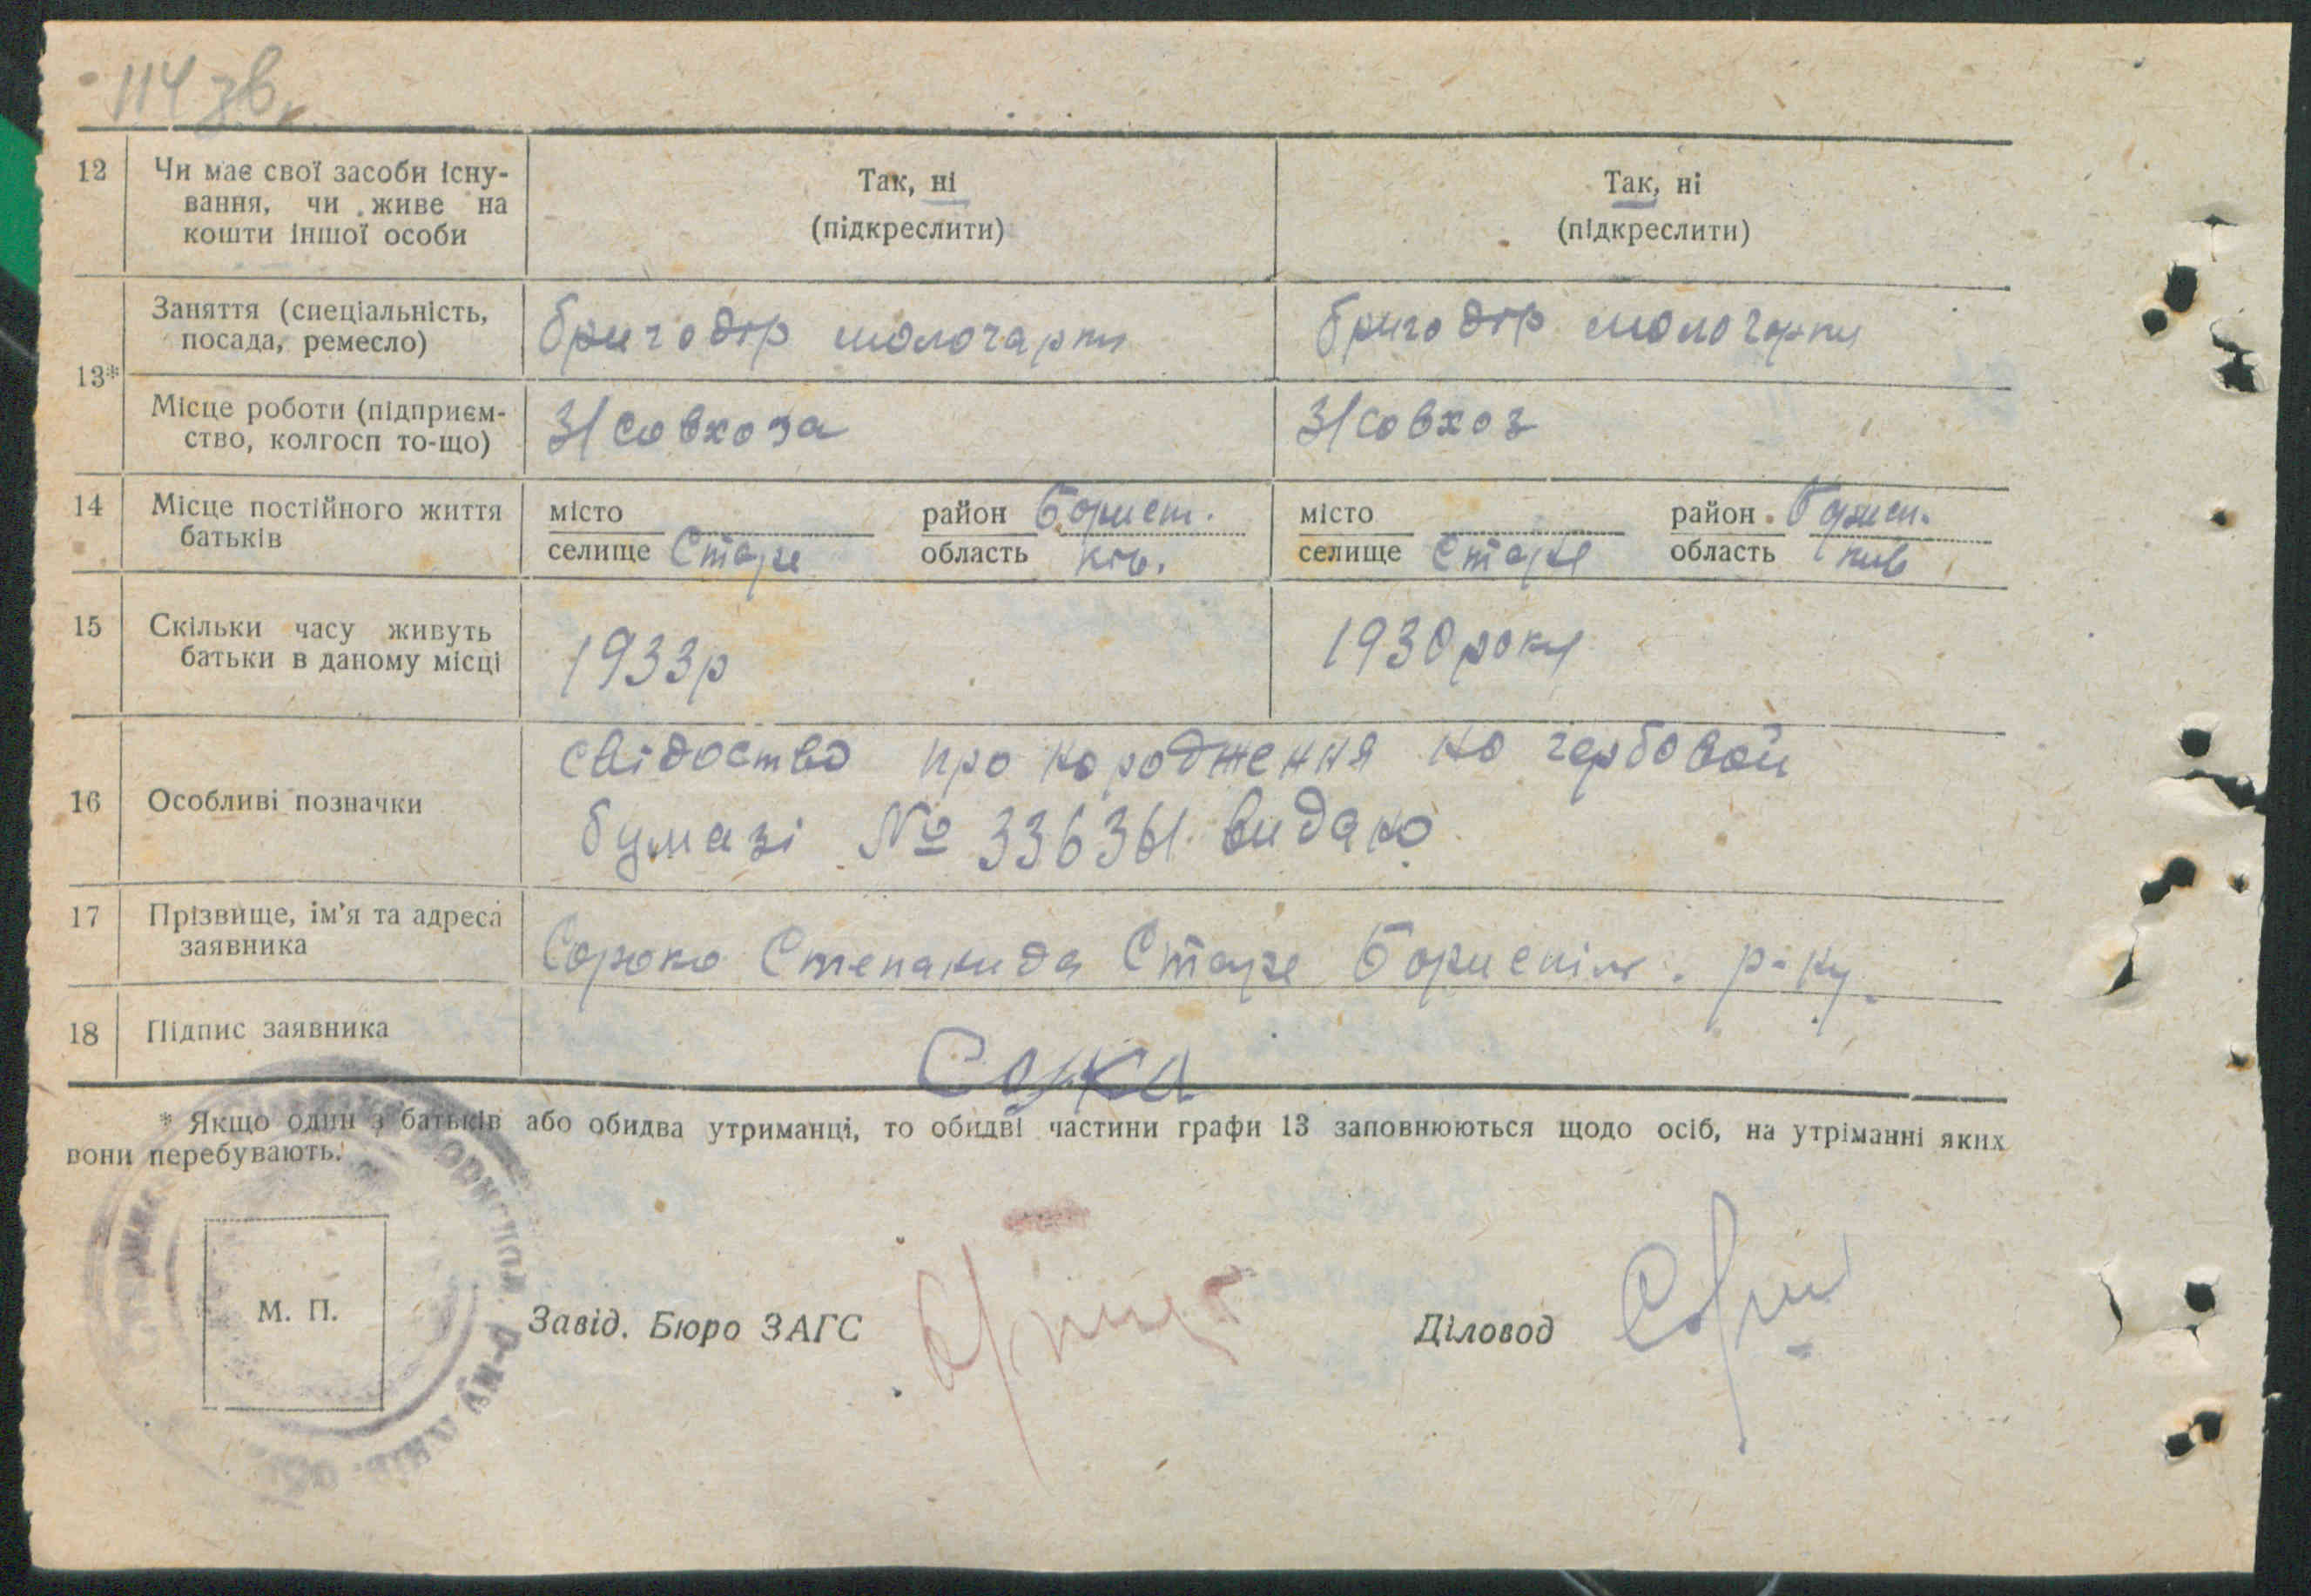 114 зв.
12 Чи має свої засоби існу- Так, ні Так, ні
вання, чи живе на (підкреслити) (підкреслити)
кошти іншої особи
13* Заняття (спеціальність, бригодір молочарни бригодір молочарни
посада, ремесло)
Місце роботи (підприєм- З/совхоза З/совхоз
ство, колгосп то-що)
14 Місце постійного життя місто район Борисп. місто район Борисп.
батьків селище Старе область Київ. селище Старе область Київ
15 Скільки часу живуть 1933р 1930 року
батьки в даному місці
свідоство про народження на гербовой
16 Особливі позначки
бумазі № 336361 видано
17 Прізвище, ім'я та адреса
заявника Сороко Степанида Старе Бориспіль. р-ну.
18 Підпис заявника
* Якщо один з батьків або обидва утриманці, то обидві частини графи 13 заповнюються щодо осіб, на утріманні яких
вони перебувають.
М. П. Завід. Бюро ЗАГС Діловод